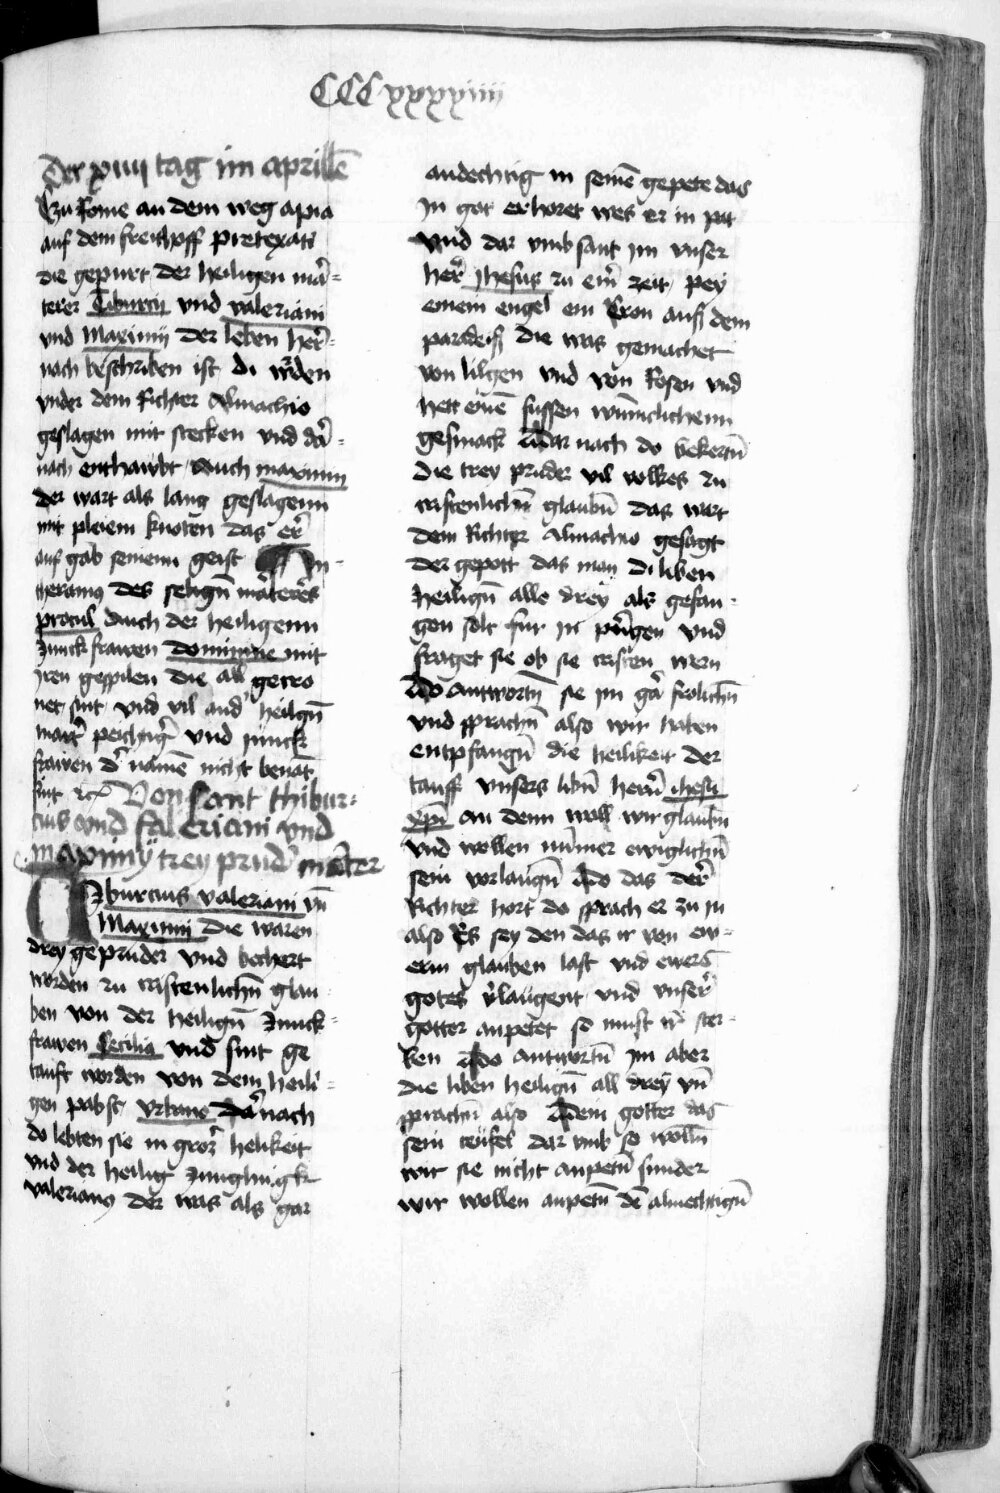 CCCxxxxiiii
Der xiiii tag im aprillē
Zu Rome an dem weg apia
auf dem freithoff pretexati
die gepurt der heiligen mar̄-
terer Tiburcii vnd valeriani
vnd Maximii der leben her-
nach beschriben ist di wrden
vnder dem Richter Almachio
geslagen mit stecken vnd dar-
nach enthawbt Auch maximii
der wart als lang geslagenn
mit pleiem knoten das er
auf gab seinenn geist
des seligñ materers
procul Auch der heiligenn
Junckfrawen dominine mit
iren gespilen die all gecro
net sint vnd vil and' heilgñ
mart' peichtig' vnd junck
frawen d' namē nicht benāt
sint etc Von sant thibur-
cius vnd faleriani vnd
maximy trey prud' marter
Tiburcius valeriani vñ
Maximii die waren
drey gepruder vnd bechert
worden zu cristenlichñ glau-
ben von der heiligñ Junck-
frawen Cecilia vnd sint ge
tauft worden von dem heili-
gen pabst vrbano Dar nach
do lebten sie in groz' helikeit
vnd der heilig Jungling
valerianus der was als gar
andechtig in seinē gepete das
in got erhoret wes er in pat
vnd dar vmb sant im vnser
her' Jhesus zu ein' zeit pey
einem engel ein Cron auß dem
paradeiß die was gemachet
von lilgen vnd von Rosen vnd
hett einē sussen wunniclichenn
gesmack Vnd dar nach do bekertñ
die trey pruder vil volkes zu
cristenlichñ glaubñ das wart
dem Richter Almachio gesagt
der gepott das man di liben
Heiligñ alle drey als gefan-
gen solt fur in pringen vnd
fraget sie ob sie cristen wern
Do antwortñ sie im gar frolichñ
vnd sprachñ also wir haben
entpfangñ die heilikeit der
tauff vnsers libñ herrñ ihesu
xp̄i an denn woll wir glaubñ
vnd wollen nimmer ewiglichñ
sein vorlaugñ Do das der
Richter hort do sprach er zu in
also Es sey den das ir von ew-
erm glauben last vnd ewers
gotes v'laugent vnd vnser'
gotter anpetet so must ir ster-
ben Do antwortñ im aber
die liben heiligñ all drey vñ
sprachñ also dein gotter das
sein teufel dar vmb so wollñ
wir sie nicht anpetñ sunder
wir wollen anpetñ dē almechtigñ